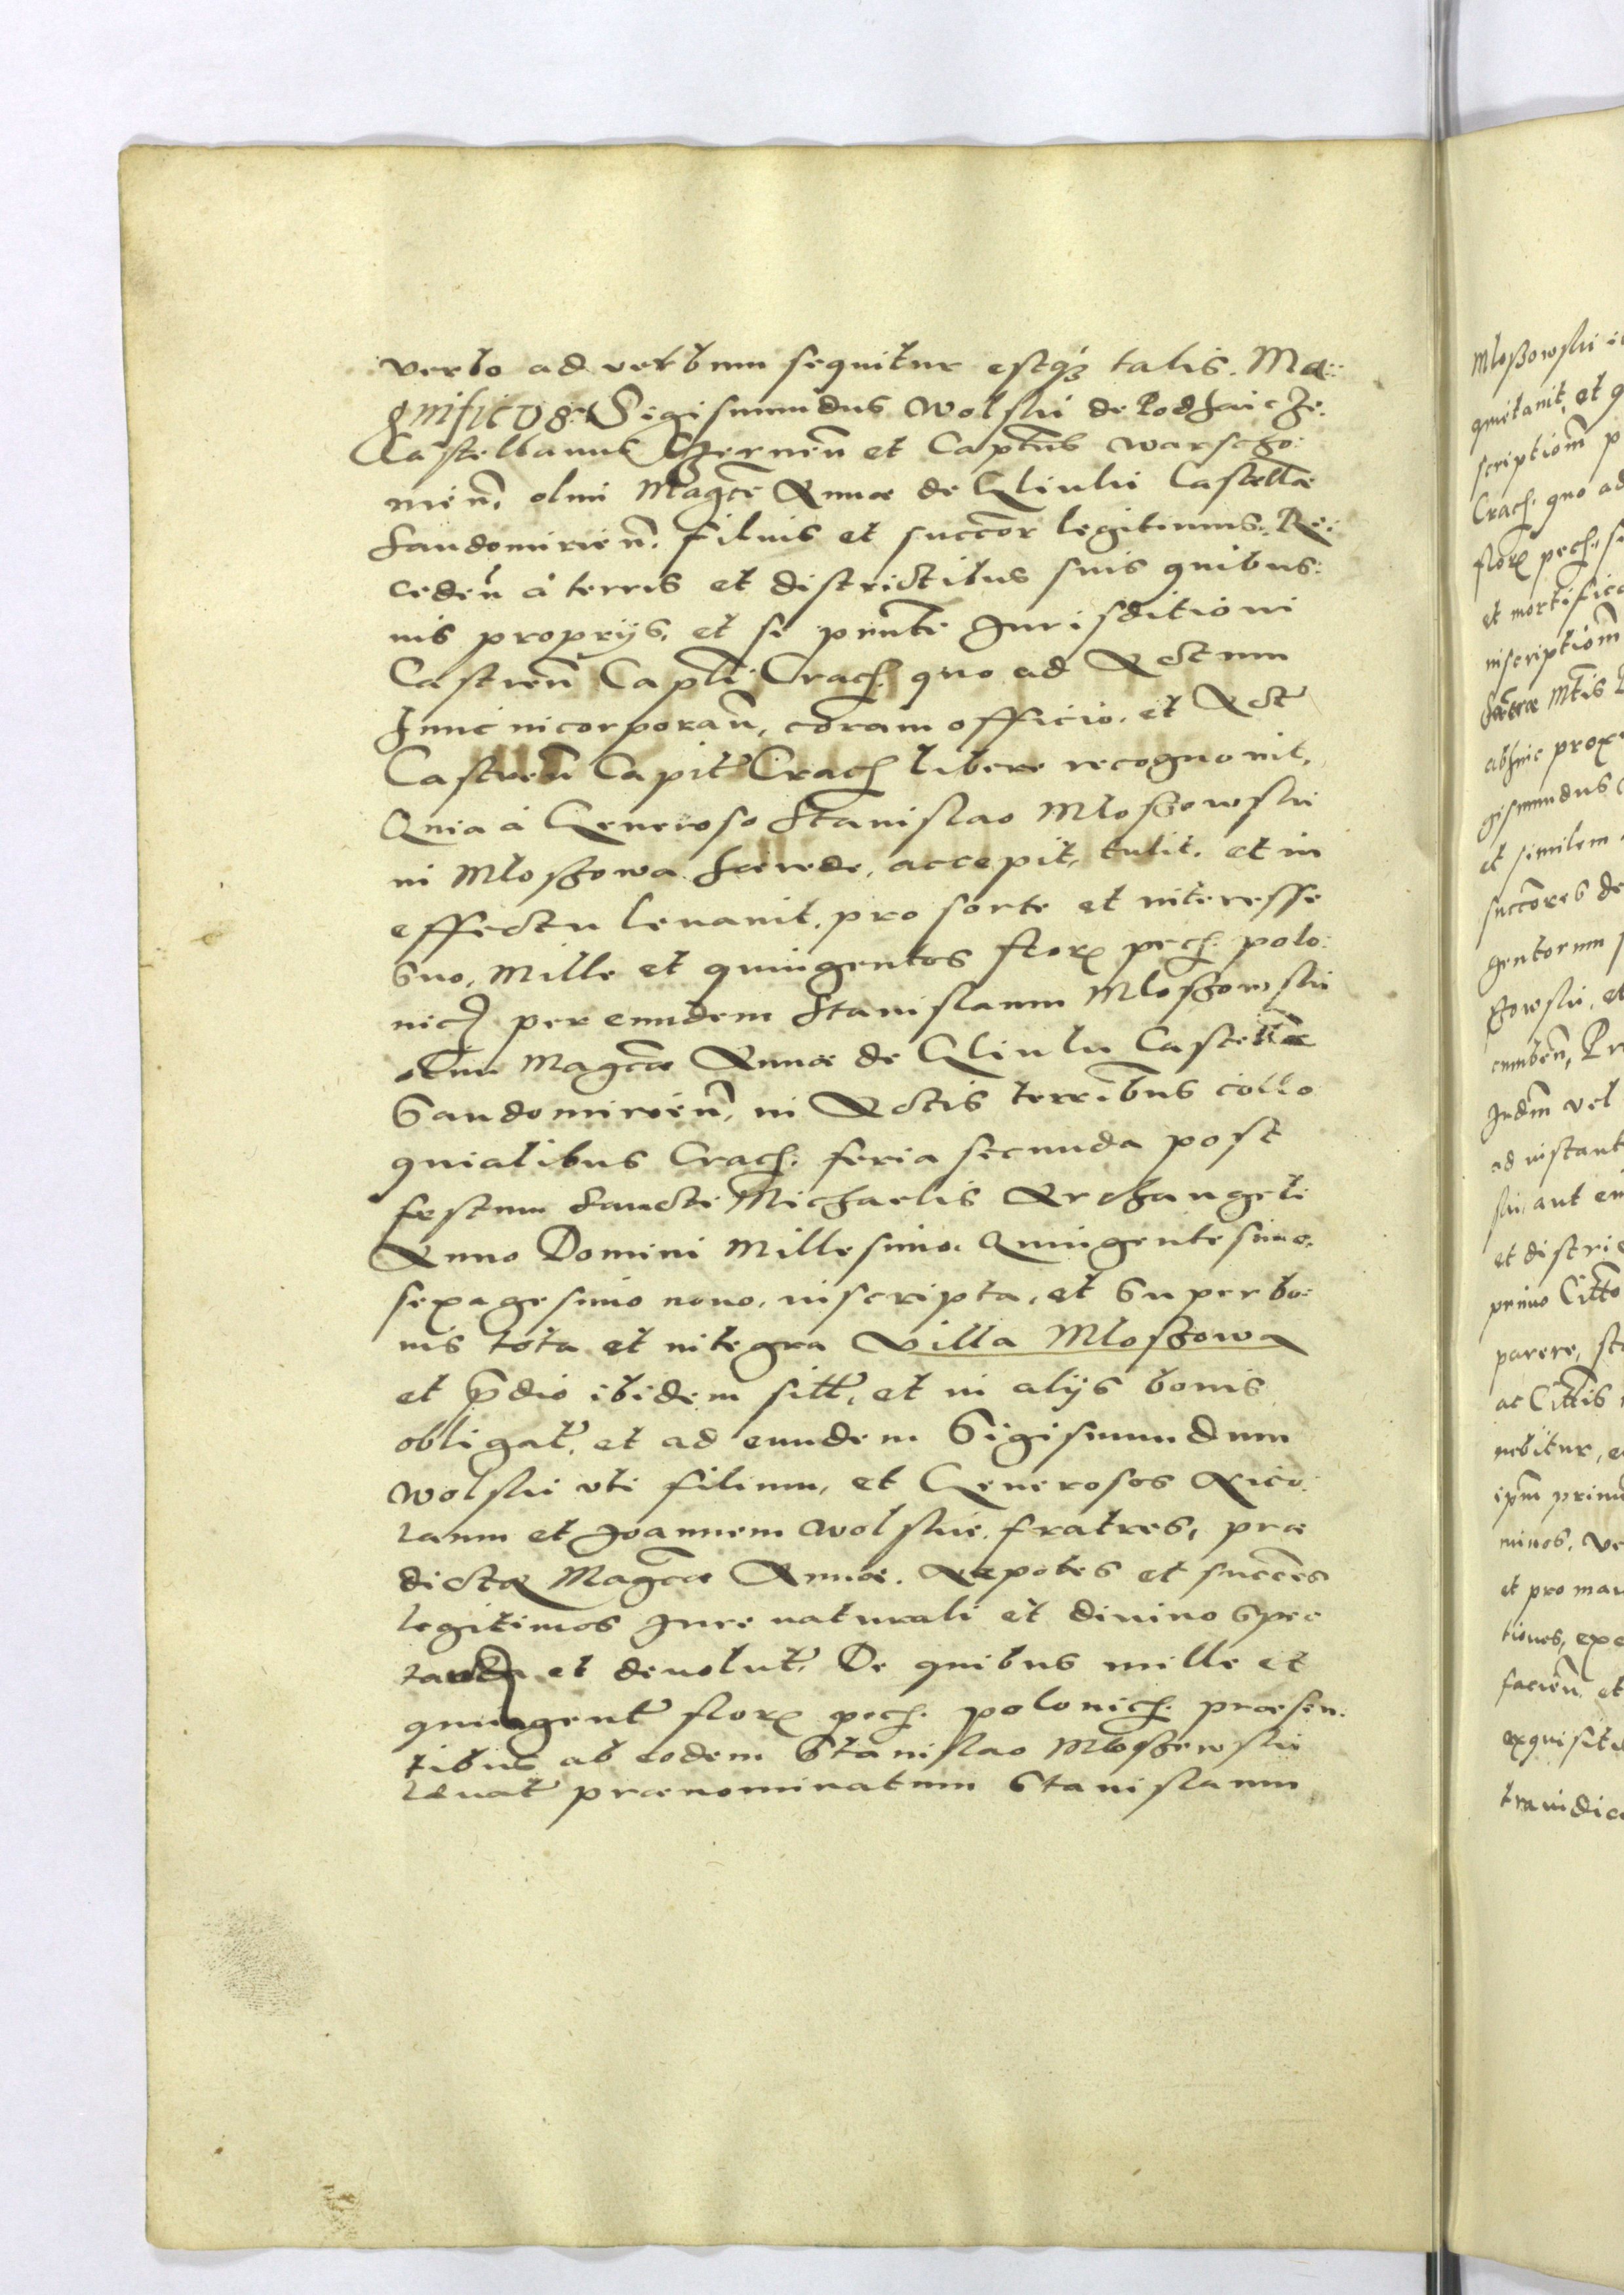 verbo ad verbum sequitur estq́z talis. Ma:
gnificus Sigismundus Wolski de Podhaicze.
Castellanus Czernen̄ et Captūs Warscho:
nien̄. olim Mag̃cę Annæ de Gliulii Castell̃æ
Sandomirien̄. filius et succ̃or legitimus. Re:
ceden̄ à terris et districtibus suis quibus:
uis proprijs. et se p̃nti Jurisditioni
Castren̄ Capl̃i Crach. quo ad Actum
hunc incorporan̄, coram officio. et Act̃
Castren̄ Capit̃ Crach libere recognouit,
Quia à Generoso Stanislao Mloszowski
in Mloszowa hærede, accepit, tulit. et in
effectu leuauit. pro sorte et interesse
suo, Mille et quingentos flor pech. polo:
nich per eundem Stanislaum Mloszowski
olim Mag̃cæ Annæ de Gliulii Castell̃æ
Sandomirien̄, in Actis terr̃ibus collo
quialibus Crach. feria secunda post
festum Sancti Michaelis Archangeli
Anno Domini Millesimo Quingentesimo.
sexagesimo nono. inscripta, et super bo:
nis tota et integra Villa Mloszowa
et p̃dio ibidem sitt̃, et in alijs bonis
obligat̃, et ad eundem Sigismundum
Wolski vti filium, et Generosos Nico:
laum et Joannem Wolskie. fratres, præ
dictæ Mag̃cæ Annæ. Nepotes et succ̃es
legitimos Jure naturali et diuino spec
tan̄ et deuolut̃. De quibus mille et
quingent̃ flor pech. polonich. præsen:
tibus ab eodem Stanislao Mloszowski
leuat̃ prænominatum Stanislaum
Mloszowski
quietauit, et
scription̄m
Crach. quo ad
flor pech.
et mortific
inscription̄m
M̃tis
abhinc prox
gismundus
et similem
succ̃ores de
gentorum
szowski, et
cumben̄,
vel
ad instant
ski, aut
et distri
primo
parere,
ac
nebitur,
ip̃m prim
minos,
et pro
tiones, exe
facien̄ et
exquisit